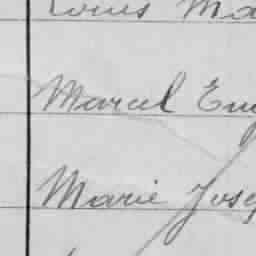 Louis Ma
Marcel Eug
Marie Jose